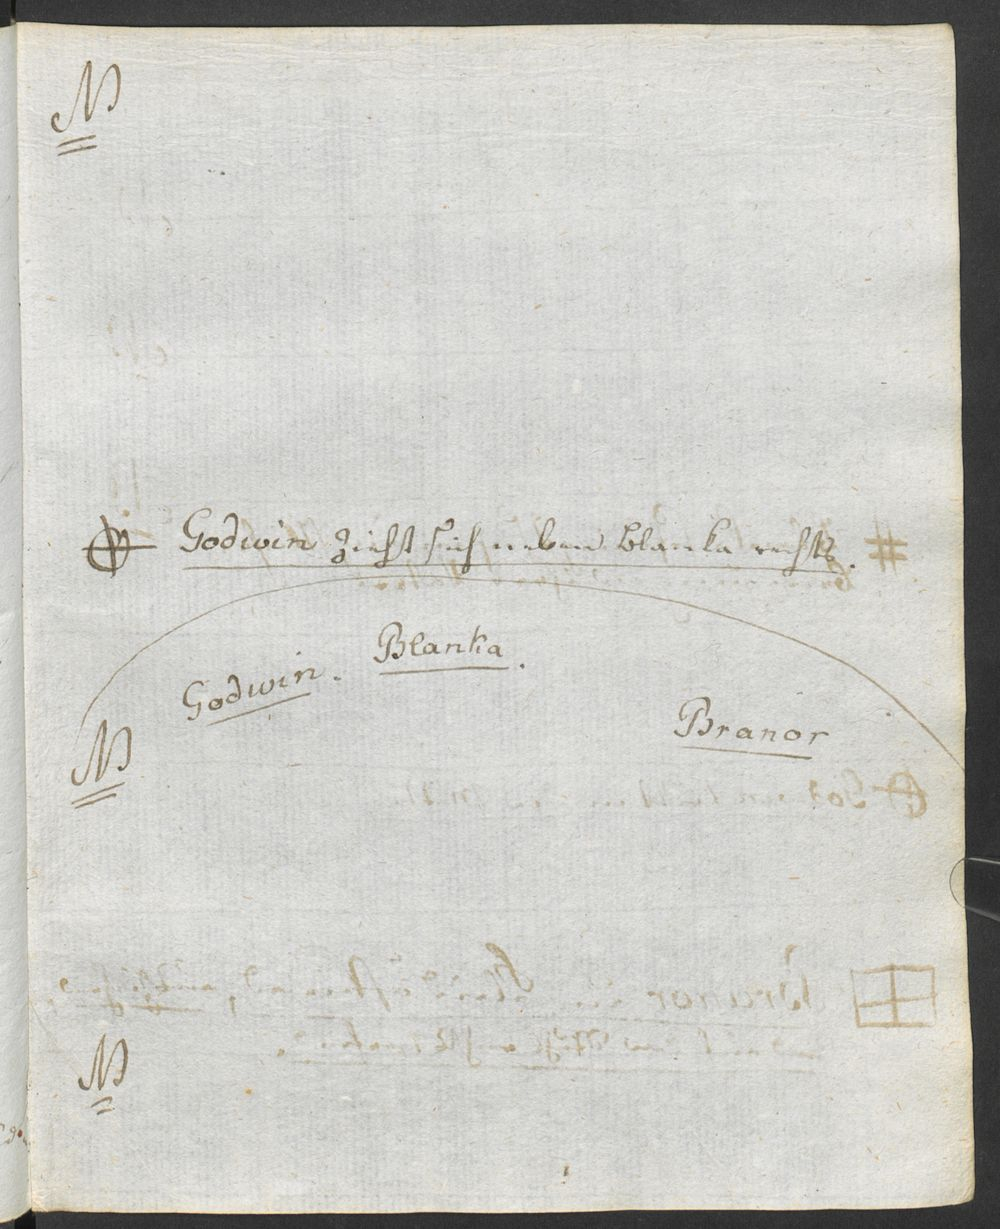 NB
Godwin zieht sich neben Blanka rechts.
Blanka.
Godwin.
Branor
NB
NB